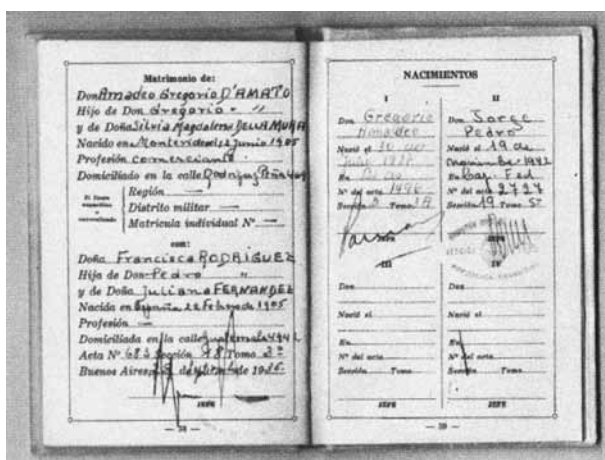 Matrimonio de:
Don Amadeo Gregorio D'AMATO
Hijo de Don Gregorio - "
y de Doña Silvia Magdalena DELLAMURA
Nacido en Montevideo 12 junio 1905
Profesión comerciante
Domiciliado en la calle Rodríguez Peña
Si fuere
argentino
o
naturalizado
Región —
Distrito militar —
Matrícula individual Nº —
con:
Doña Francisca RODRIGUEZ
Hija de Don Pedro "
y de Doña Juliana FERNANDEZ
Nacida en España 22 Febrero de 1905
Profesión —
Domiciliada en la calle Guatemala 4942
Acta Nº 683 Sección 18 Tomo 2º
Buenos Aires, de de 1936
JEFE
— 38 —
NACIMIENTOS
I
Don Gregorio
Amadeo
Nació el 30 de
1937
En Bs As
Nº del acta 1496
Sección Tomo
JEFE
III
Don
Nació el
En
Nº del acta
Sección Tomo
JEFE
II
Don Jorge
Pedro
Nació el 19 de
1942
En Cap. Fed
Nº del acta 2727
Sección 19 Tomo 5º
JEFE
IV
Don
Nació el
En
Nº del acta
Sección Tomo
JEFE
— 39 —